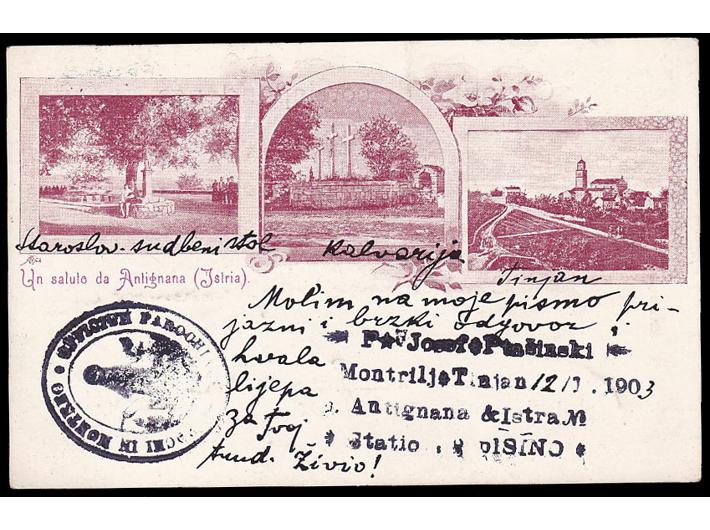 Staroslov. sudbeni stol
Kalvarija
Tinjan
Un saluto da Antignana (Istria).
Molim, na moje pismo pri-
jazni i brzki odgovor,
hvala
lijepa
za Tvoj
trud. Živio!
Josef Ptašinski
Montrilj Tinjan 12/1. 1903
p. Antignana & Istra
Statio PISINO
OFFICIUM PAROCHI
IN MONTRE